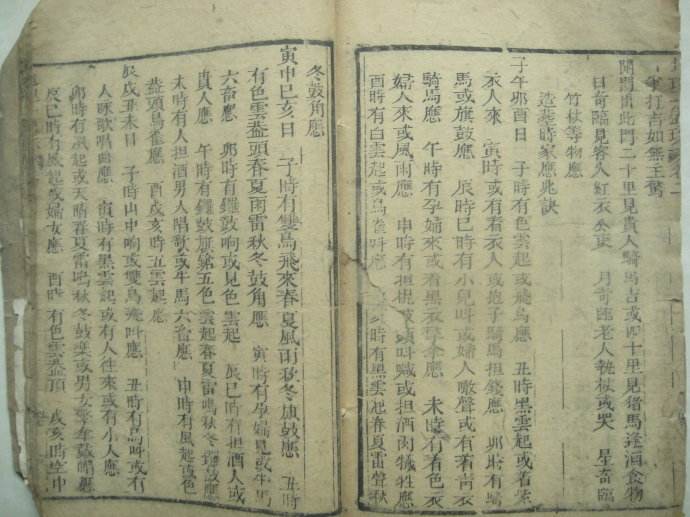 年打若如無主驚
開門出此門二十里見貴人騎馬吉或四十里見猪馬逢酒食物
日奇臨見客人紅衣公吏 月奇臨老人執杖或哭 星奇臨
竹杖等物應
造葬時家應兆訣
子午卯酉日 子時有色雲起或飛鳥應 丑時黑雲起或着紫
衣人來 寅時或有着衣人或抱子騎馬担錢應 卯時有騎
馬或旗鼓應 辰時巳時有小兒叫或婦人噉聲或有着青衣
騎馬應 午時有孕婦來或着黑衣擎傘應 未時有着色衣
婦人來或風雨應 申時有担棍或頭叫喊或担酒肉犧牲應
酉時有白雲起或鳥雀叫應 戌亥時有黑雲起春夏雷聲秋
冬鼓角應
寅申巳亥日 子時有雙鳥飛來春夏風雨秋冬旗鼓應 丑時
有色雲蓋頭春夏雨雷秋冬鼓角應 寅時有孕婦見或牛馬
六畜應 卯時有鐘鼓响或見色雲起 辰巳時有担酒人或
貴人應 午時有鐘鼓旗鎗五色雲起春夏雷鳴秋冬鐘鼓應
未時有人担酒男人唱歌或牛馬六畜應 申時有風起或色
蓋頭鳥雀應 酉戌亥時五雲起應
辰戌丑未日 子時山中响或雙鳥飛叫應 丑時有馬叫或有
人咏歌唱曲應 寅時有黑雲起或有人往來或有小人應
卯時有風起或天晴春夏雷鳴秋冬鼓樂或男女擎傘鼓唱應
辰巳時有風起或婦女應 酉時有色雲蓋頂 戌亥時空中